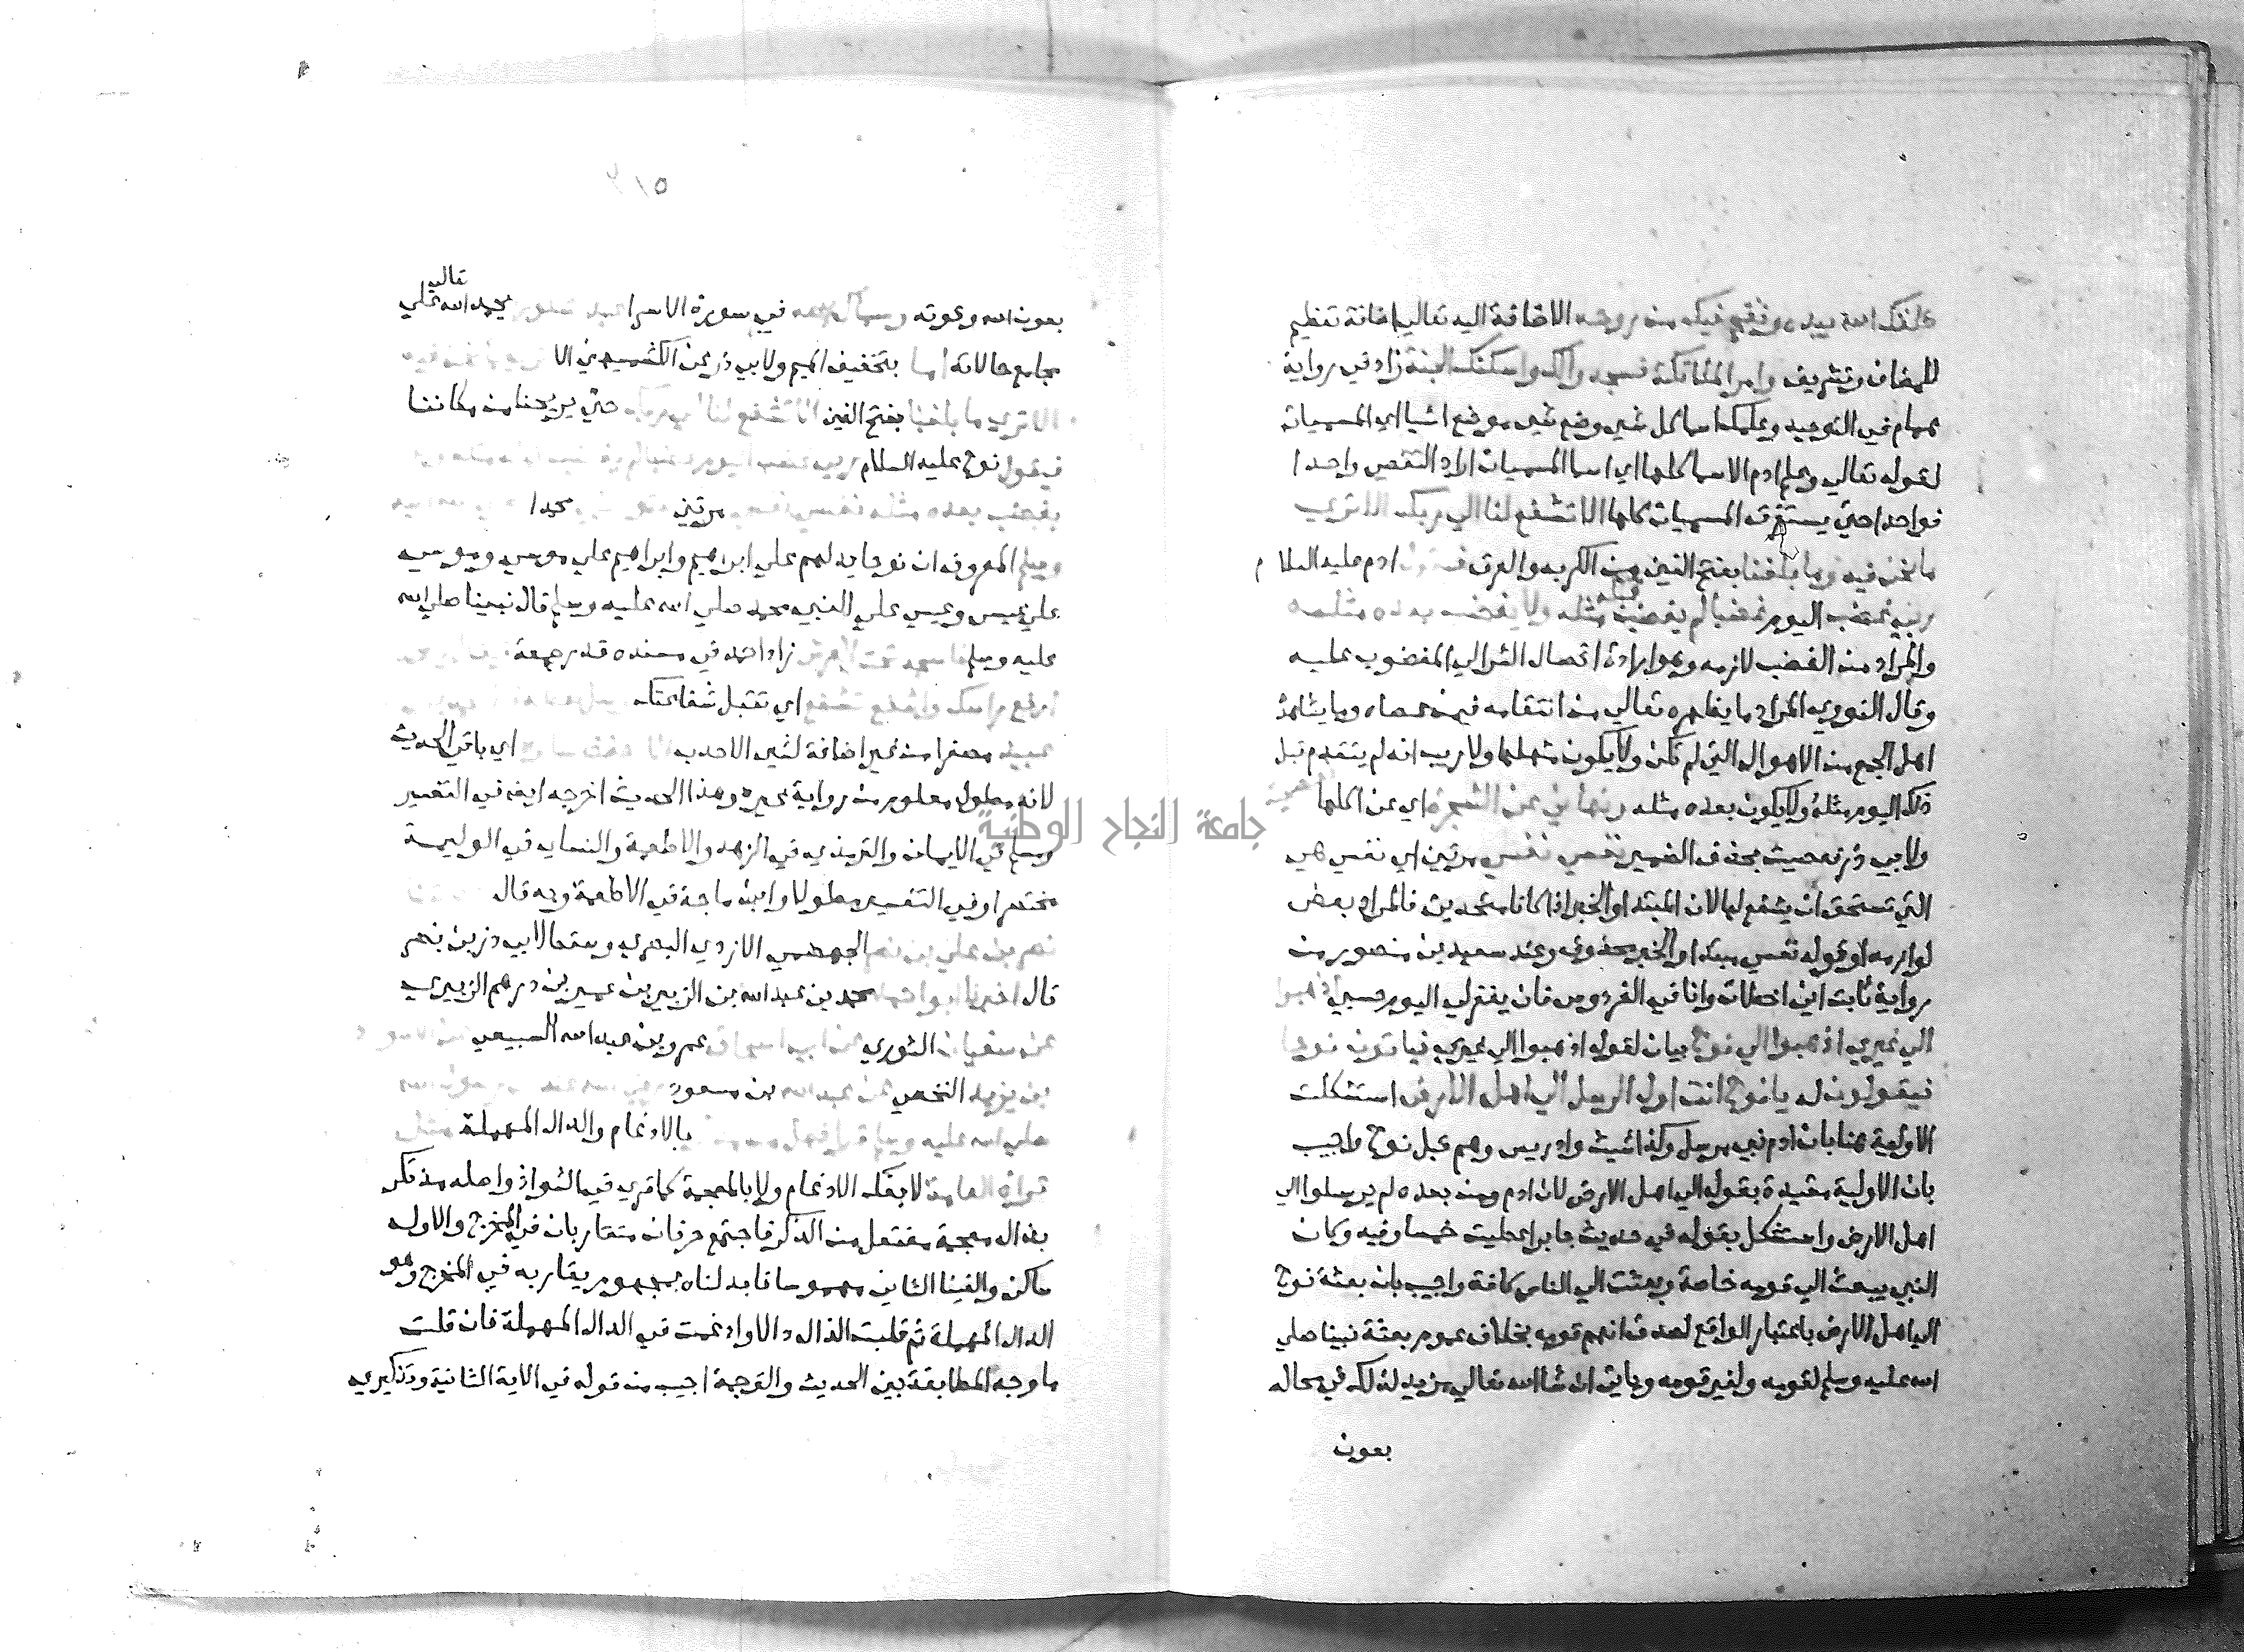 خلقك الله بيده ونفخ فيك من روحه الاضافة اليه تعالى اضافة تعظيم
للمضاف وتشريف وامر الملئكة فسجدوا لك واسكنك الجنة زاد في رواية
همام في التوحيد وعلمك اسما كل شي وضع شي موضع اشيا اي المسميات
لقوله تعالى وعلم ادم الاسما كلها اي اسما المسميات اراد التقصي واحدا
فواحدا حتى يستغرق المسميات كلها الا تشفع لنا الي ربك الا تري
ما نحن فيه وما بلغنا بفتح الغين من الكرب والعرق فيقول ادم عليه السلام
ربي غضب اليوم غضبا لم يغضب قبله مثله ولا يغضب بعده مثله
والمراد من الغضب لازمه وهو ارادة اتصال الشر الي المغضوب عليه
وقال النووي المراد ما يظهره تعالي من انتقامه فيمن عصاه وما يشاهد
اهل الجمع من الاهوال التي لم تكن ولا يكون مثلها ولا ريب انه لم يتقدم قبل
ذلك اليوم مثله ولا يكون بعده مثله ونهاني عن الشجرة اي عن اكلها
ولابي ذر فعصيت بحذف الضمير نفسي نفسي مرتين اي نفسي هي
التي تستحق ان يشفع لها لان المبتدا والخبر اذا كانا متحدين فالمراد بعض
لوازمه او قوله نفسي مبتدا والخبر محذوف وعند سعيد بن منصور من
رواية ثابت اني اخطات وانا في الفردوس فان يغفر لي اليوم حسبي اذهبوا
الي غيري اذهبوا الي نوح بيان لقوله اذهبوا الي غيري فياتون نوحا
فيقولون له يا نوح انت اول الرسل الي اهل الارض استشكلت
الاولية هنا بان ادم نبي مرسل وكذا شيث وادريس وهم قبل نوح واجيب
بان الاولية مقيدة بقوله الي اهل الارض لان ادم ومن بعده لم يرسلوا الي
اهل الارض واستشكل بقوله في حديث جابر اعطيت خمسا وفيه وكان
النبي يبعث الي قومه خاصة وبعثت الي الناس كافة واجيب بان بعثة نوح
الي اهل الارض باعتبار الواقع لصدق انهم قومه بخلاف عموم بعثة نبينا صلي
الله عليه وسلم لقومه ولغير قومه وياتي ان شا الله تعالي مزيد لذلك في محاله
بعون
٢١٥
بعون الله وقوته في سورة الاسرا بحمد الله تعالي علي
مجامع حالاته اما بتخفيف الميم ولابي ذر عن الكشميهني الا
الا تري ما بلغنا بفتح الغين الا تشفع لنا الي ربك حتي يريحنا من مكاننا
فيقول نوح عليه السلام ربي غضب اليوم غضبا لم يغضب قبله مثله ولا
يغضب بعده مثله نفسي نفسي مرتين محمدا
وسلم المعروف ان نوحا يدلهم علي ابراهيم وابراهيم علي موسي وموسي
علي عيسي وعيسي علي النبي محمد صلي الله عليه وسلم قال نبينا صلي الله
عليه وسلم فاسجد تحت العرش زاد احمد في مسنده قدر جمعة
ارفع راسك واشفع تشفع اي تقبل شفاعتك
عبيد مصغرا من غير اضافة لشي الاحدب لا احفظ سايره اي باقي الحديث
لانه مطول معلوم من رواية غيره وهذا الحديث اخرجه ايضا في التفسير
ومسلم في الايمان والترمذي في الزهد والاطعمة والنساي في الوليمة
مختصرا وفي التفسير مطولا وابن ماجة في الاطعمة وبه قال
نصر بن علي بن نصر الجهضمي الازدي البصري وسقط لابي ذر بن نصر
قال اخبرنا ابو احمد محمد بن عبد الله بن الزبير بن عمير بن درهم الزبيري
عن سفيان الثوري عن ابي اسحاق عمرو بن عبد الله السبيعي عن الاسود
بن يزيد النخعي عن عبد الله بن مسعود
صلي الله عليه وسلم قرا فهل من مدكر بالادغام والدال المهملة مثل
قراة العامة لا بفك الادغام ولا بالمعجمة كما قري في الشواذ واصله مذتكر
بذال معجمة مفتعل من الذكر فاجتمع حرفان متقاربان في المخرج والاول
ساكن والفينا الثاني مهموسا فابدلناه بمجهور يقاربه في المخرج وهو
الدال المهملة ثم قلبت الذال دالا وادغمت في الدال المهملة فان قلت
ما وجه المطابقة بين الحديث والترجمة اجيب من قوله في الاية الثانية وتذكيري
جامعة النجاح الوطنية